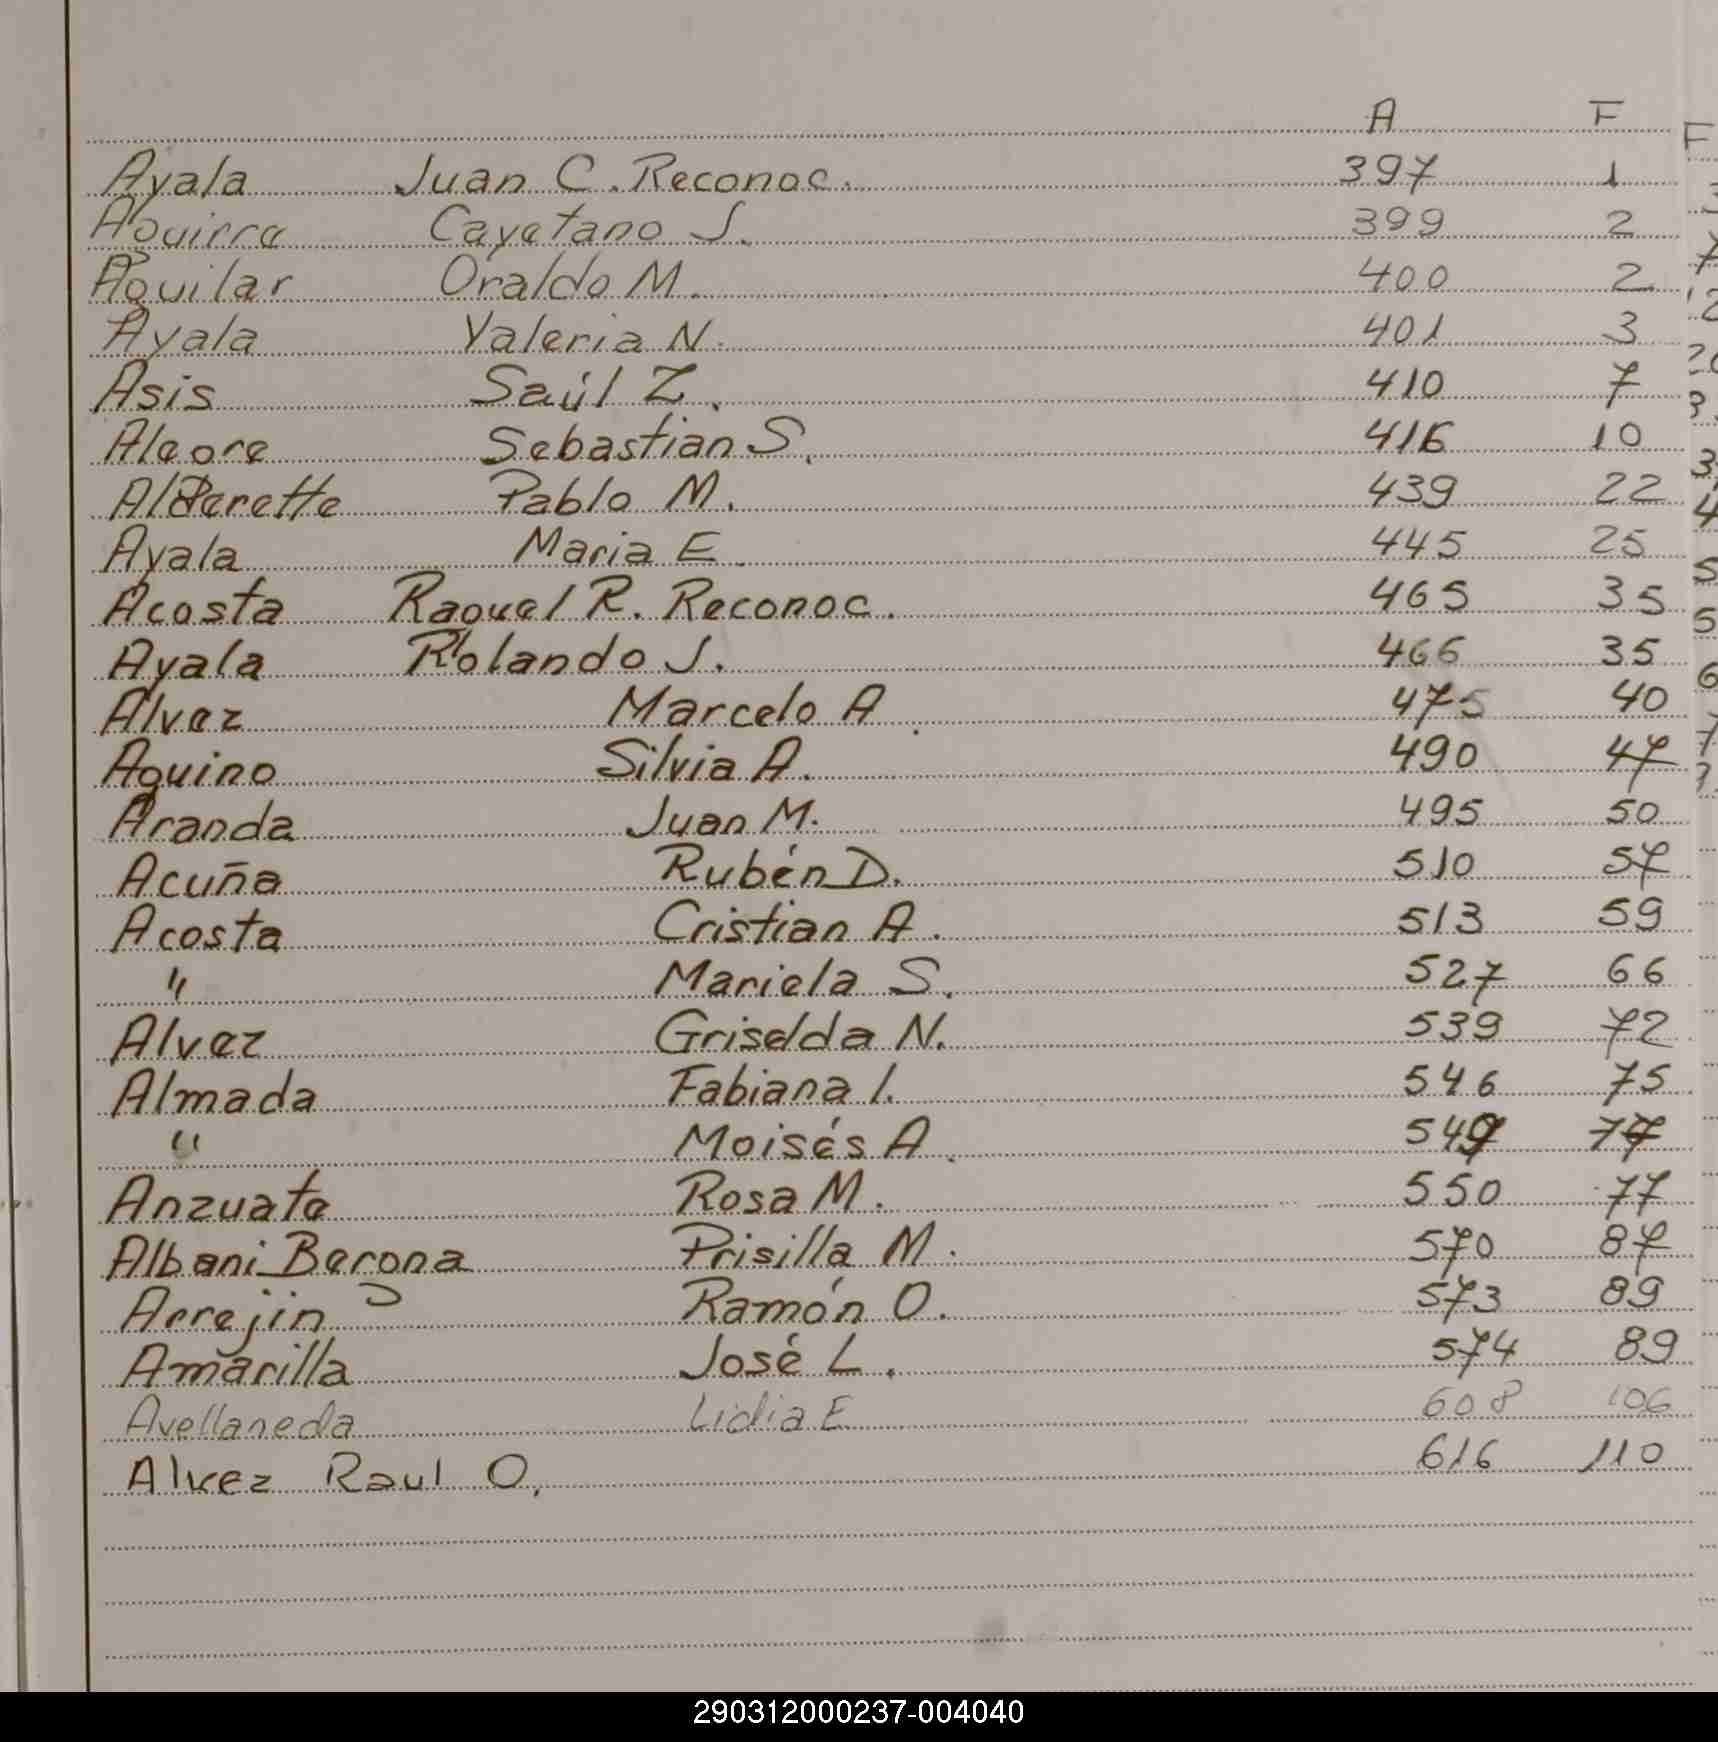 A F
Ayala Juan C. Reconoc. 397 1
Aguirre Cayetano J. 399 2
Aguilar Oraldo M. 400 2
Ayala Valeria N. 401 3
Asis Saúl Z. 410 7
Alegre Sebastian S. 416 10
Alderette Pablo M. 439 22
Ayala Maria E. 445 25
Acosta Raquel R. Reconoc. 465 35
Ayala Rolando J. 466 35
Alvez Marcelo A. 475 40
Aquino Silvia A. 490 47
Aranda Juan M. 495 50
Acuña Rubén D. 510 57
Acosta Cristian A. 513 59
" Mariela S. 527 66
Alvez Griselda N. 539 72
Almada Fabiana I. 546 75
" Moisés A. 549 77
Anzuate Rosa M. 550 77
Albani Berona Prisilla M. 570 87
Arrejin Ramón O. 573 89
Amarilla José L. 574 89
Avellaneda Lidia E 608 106
Alvez Raul O. 616 110
290312000237-004040